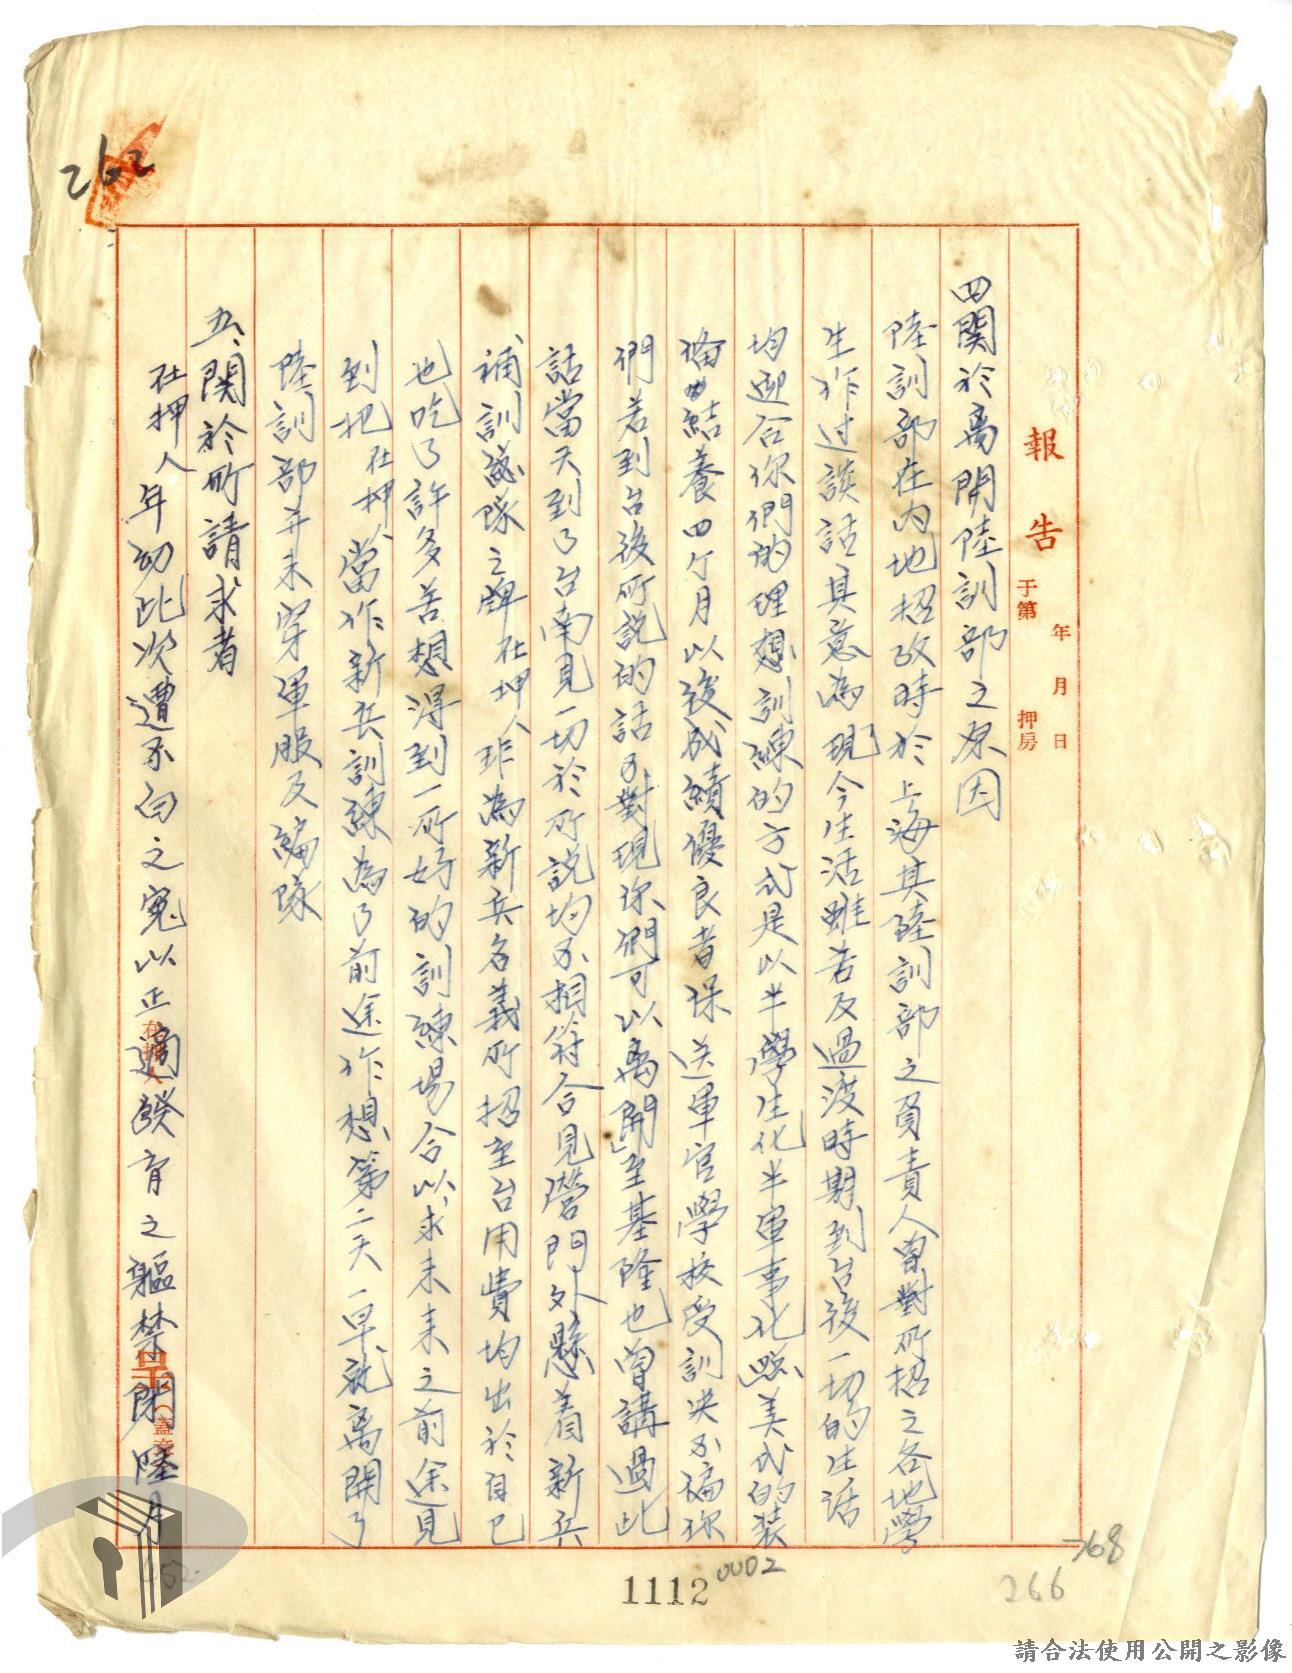 報告
年 月 日
于第 押房
四關於离開陸訓部之原因
陸訓部在內地招攷時於上海其陸訓部之負責人曾對所招之各地學
生作过談話其意為現今生活雖苦及過渡時期到台後一切的生活
均迎合你們的理想訓練的方式是以半學生化半軍事化照美式的裝
備結養四个月以後成績優良者保送軍官學校受訓決不騙你
們若到台後所說的話不對現你們可以离開至基隆也曾講過此
話當天到了台南見一切於所說均不相符合見營門外懸着新兵
補訓總隊之牌在押人非為新兵名義所招至台用費均出於自己
也吃了許多苦想得到一所好的訓練場合以求未來之前途見
到把在押人當作新兵訓練為了前途作想第二天一早就离開了
陸訓部并未穿軍服及編隊
五、關於所請求者
在押人年幼此次遭不白之冤以正適發育之軀禁閉陸月
在押人 呈（蓋章
262
252
1112
0002
266
268
請合法使用公開之影像